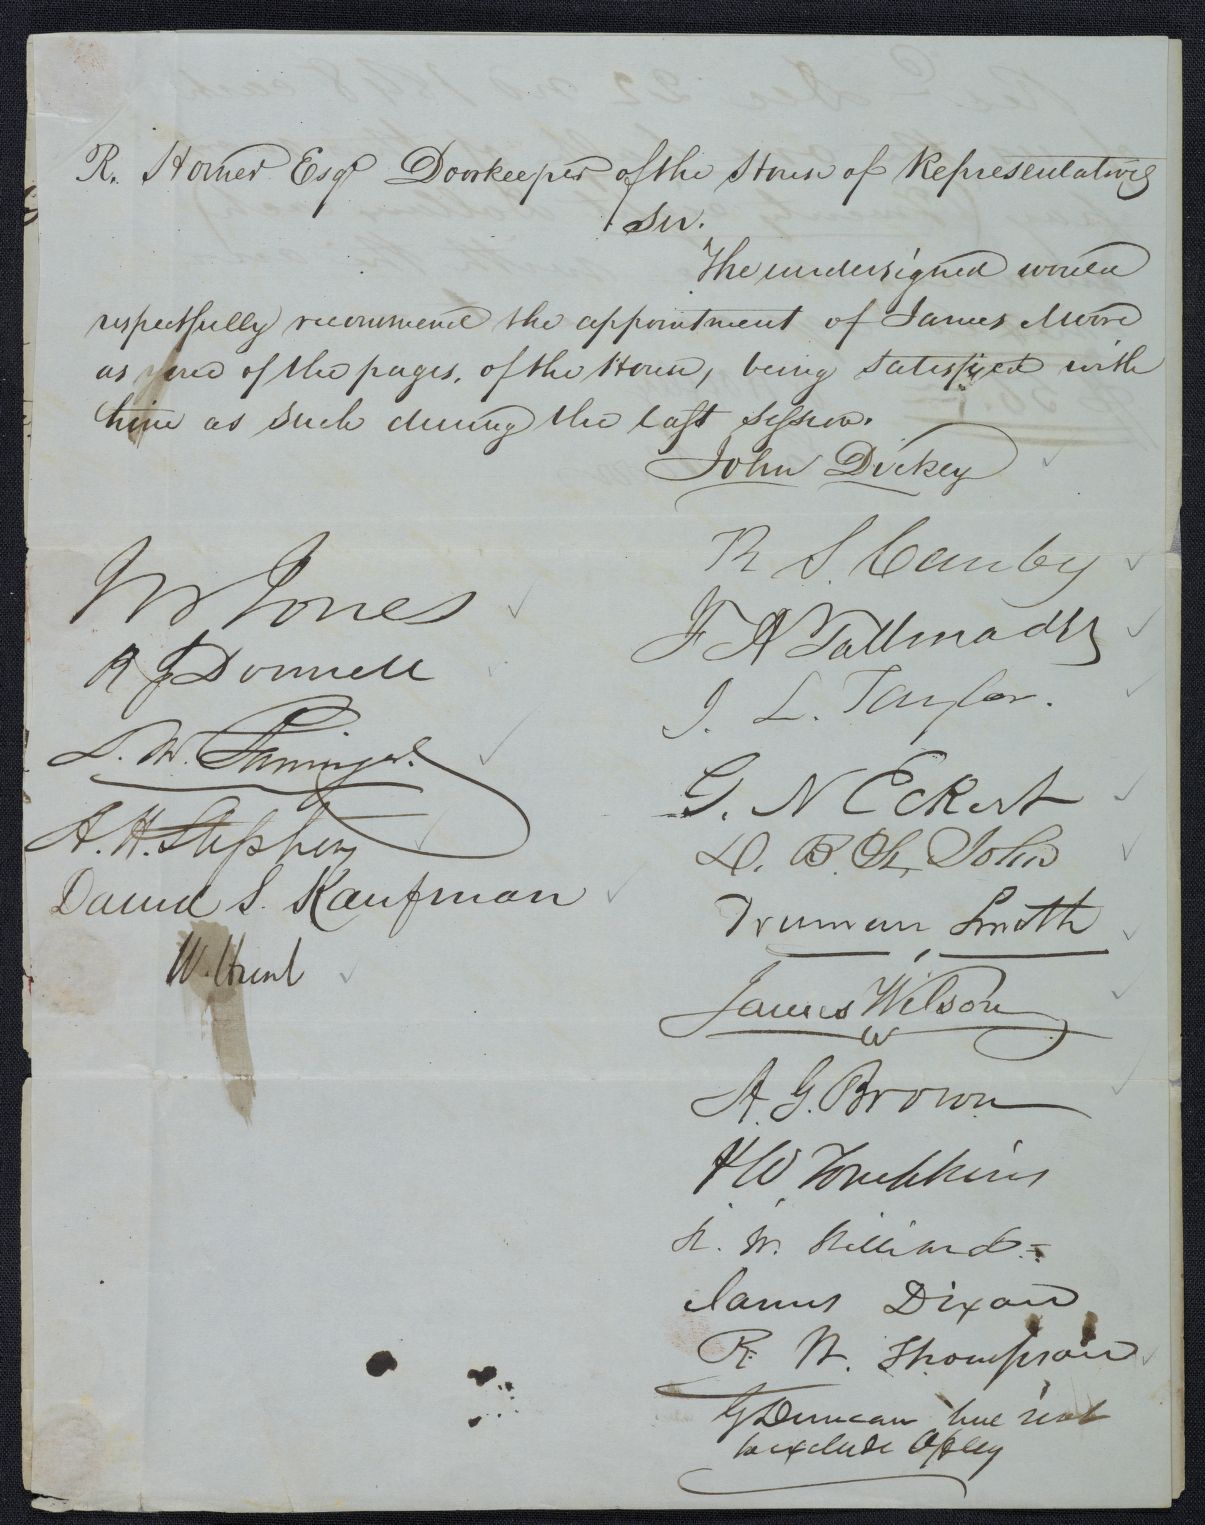 R. Horner Esqr Doorkeeper of the House of Representatives
Sir.
The undersigned would
respectfully recommend the appointment of James Moore
as one of the pages, of the House, being satisfyed with
him as such during the last session.
John Dickey
R S. Canby
F A Tallmadge
J. L. Taylor.
G. N Eckert
D. B. St. John
Truman Smith
James Wilson
A. G. Brown
P W Tompkins
H. W. Hilliard
James Dixon
R. W. Thompson
G Duncan but not
to exclude Oxley
Jno W Jones
R S Donnell
L. W.
A. H. Stephens
David S. Kaufman
W. Hunt